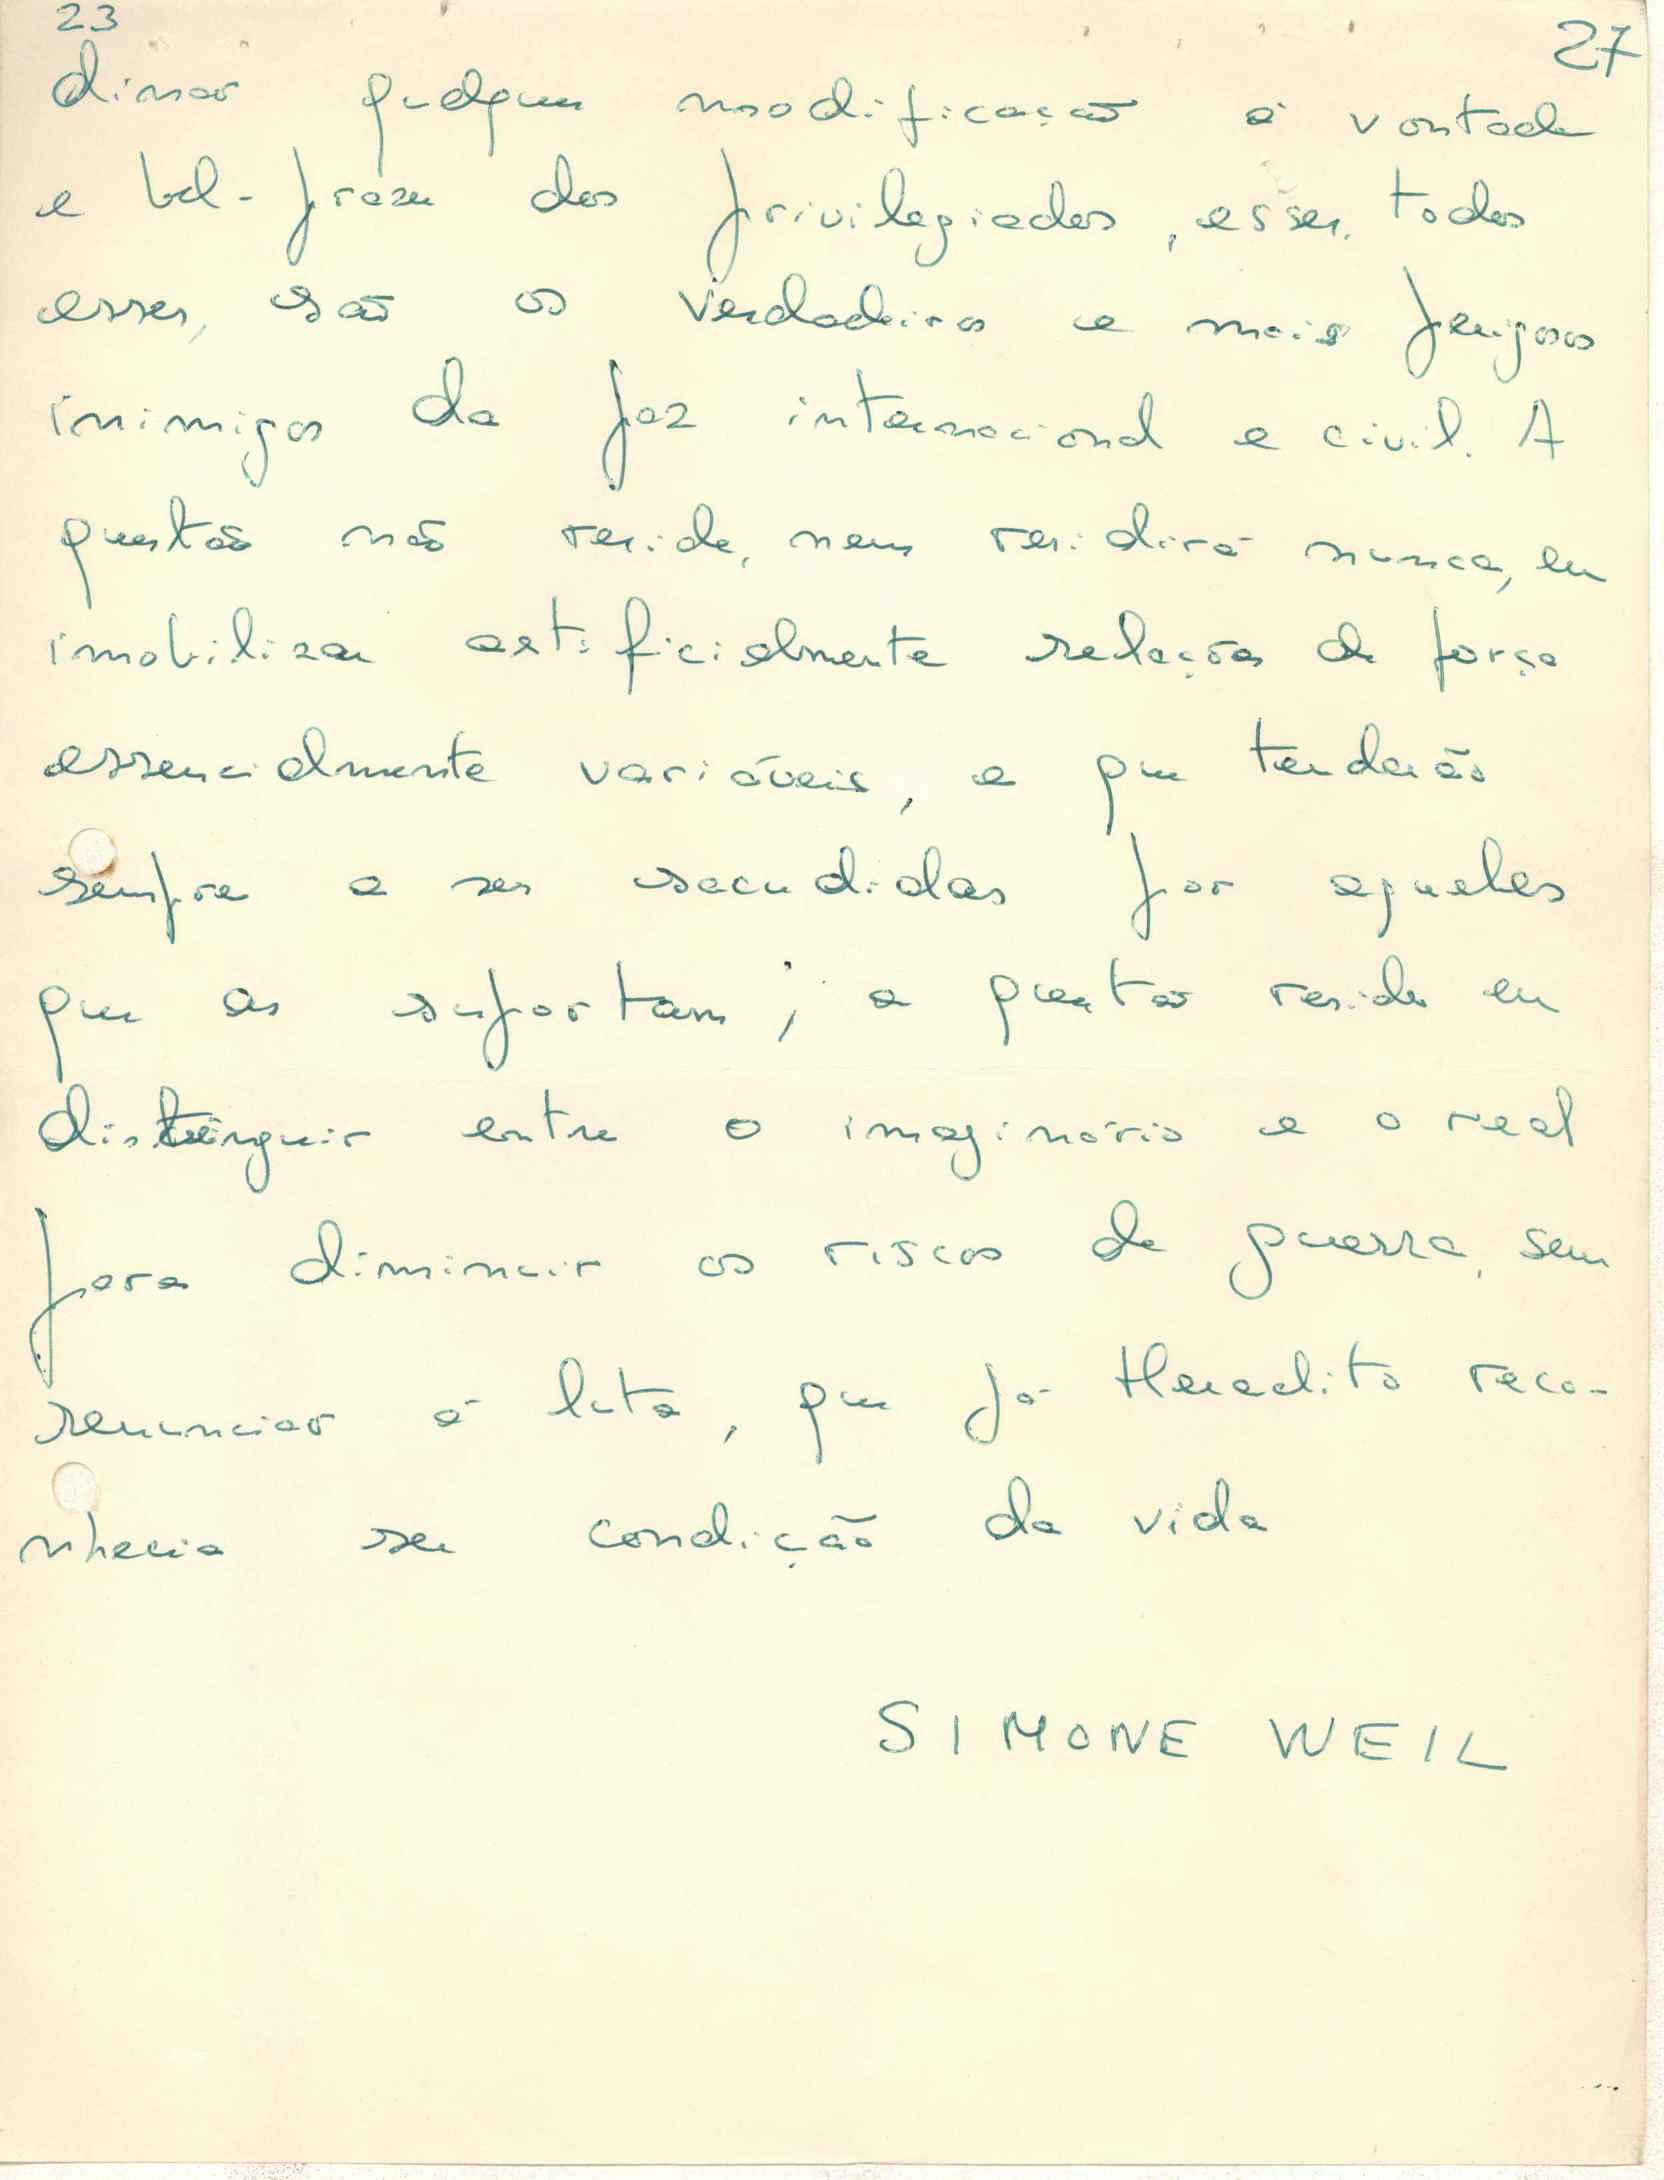 23
27
dinar qualquer modificação à vontade
e bel-prazer dos privilegiados, esses, todos
esses, são os verdadeiros e mais perigosos
inimigos da paz internacional e civil. A
questão não reside, nem residirá nunca, em
imobilizar artificialmente relações de força
essencialmente variáveis, e que tenderão
sempre a ser sacudidas por aqueles
que as suportam; a questão reside em
distinguir entre o imaginário e o real
para diminuir os riscos de guerra, sem
renunciar à luta, que já Heraclito reco-
nhecia ser condição da vida
SIMONE WEIL